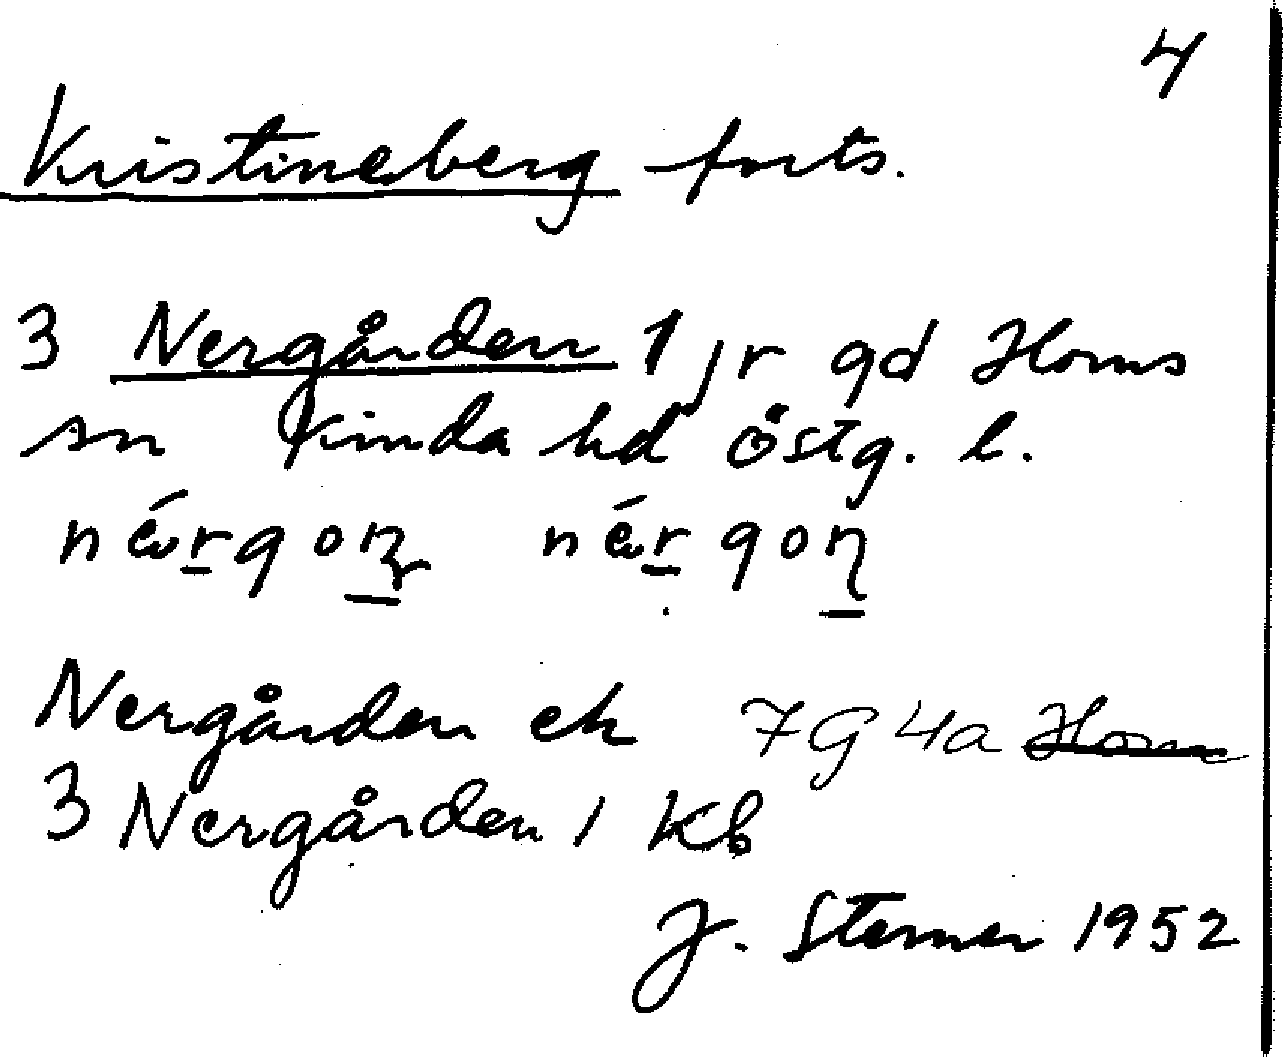 4
Kristineberg forts.
3 Nergården 1 jr gd Horns
sn Kinda hd östg. l.
Nergården ek 7G 4a Horn
3 Nergården 1 Kb
J. Sterner 1952